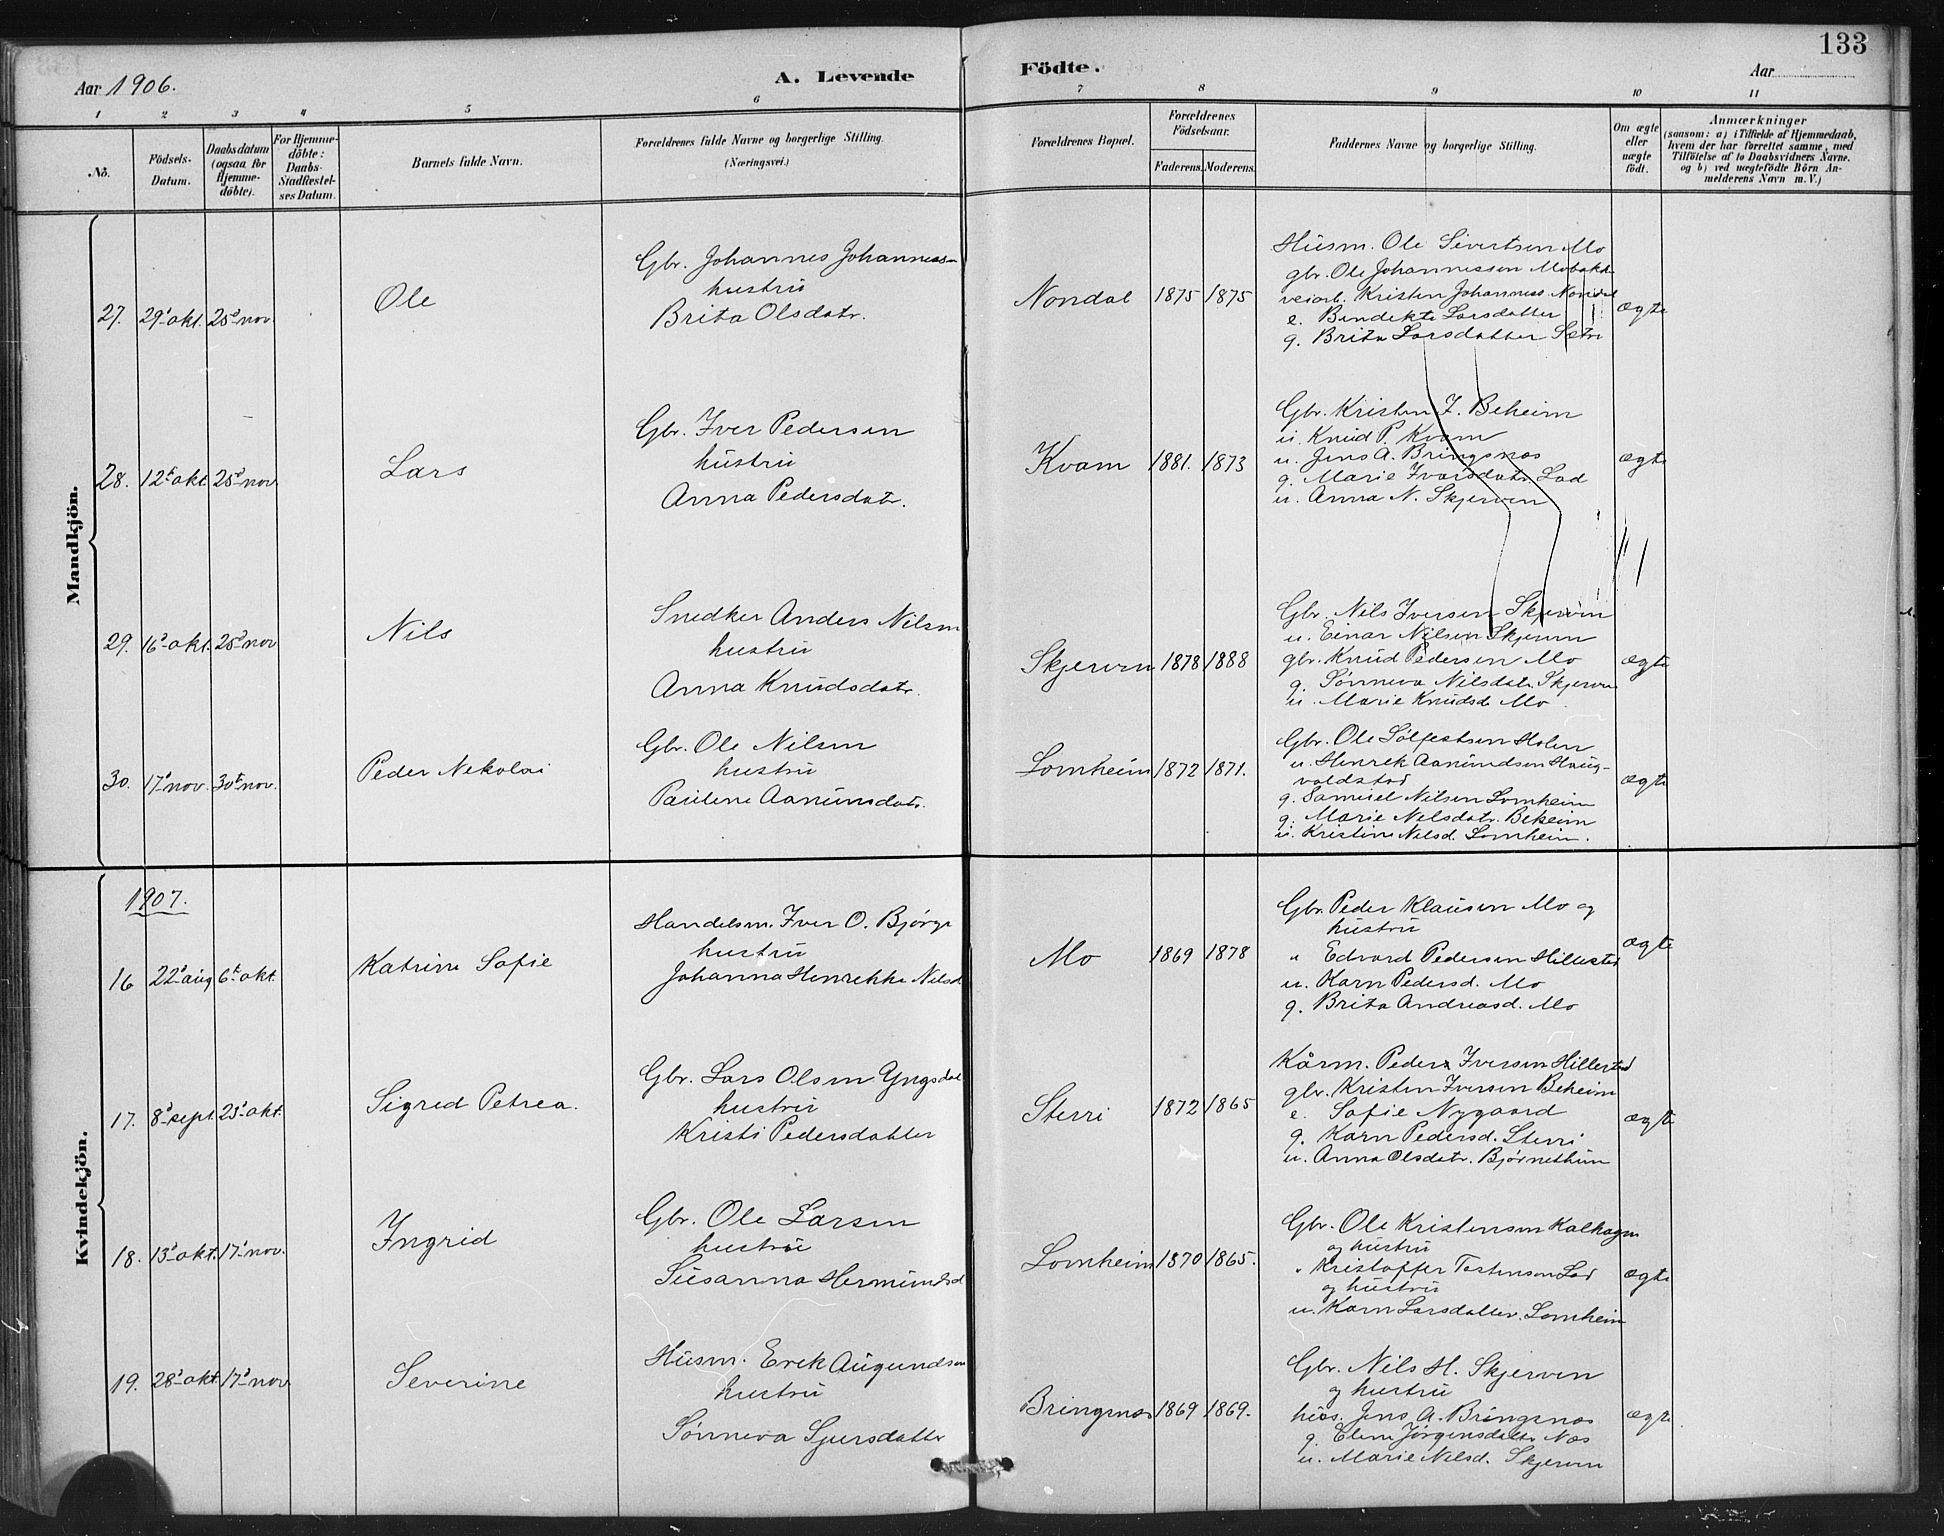 133
Aar 1906.
A. Levende
Födte.
Aar
1
2
3
4
5
6
7
8
9
10
11
No.
Födsels-
Datum.
Daabsdatum
(ogsaa for
Hjemme-
döbte).
For Hjemme-
döbte:
Daabs-
Stadfæstel-
ses Datum.
Barnets fulde Navn.
Forældrenes fulde Navne og borgerlige Stilling.
(Næringsvei.)
Forældrenes Bopæl.
Forældrenes
Födselsaar.
Faderens.
Moderens.
Faddernes Navne og borgerlige Stilling.
Om ægte
eller
uægte
födt.
Anmærkninger
(saasom: a) i Tilfælde af Hjemmedaab,
hvem der har forrettet samme, med
Tilföielse af to Daabsvidners Navne.
og b) ved uægtefödte Börn An-
melderens Navn m. V.)
Mandkjön.
27. 29' okt. 25' nov.
Ole
Gbr. Johannes Johanness-
hustru
Brita Olsdatr.
Nondal 1875 1875
Husm. Ole Sivertsen Mo
gbr. Ole Johannessen
veiarb. Kristen Johanness Nondal
e. Bendikte Larsdatter
g. Brita Larsdatter Sætri
ægte
28. 12t okt. 25' nov.
Lars
Gbr. Iver Pedersen
hustru
Anna Pedersdatr.
Kvam 1881. 1873
Gbr. Kristen I. Beheim
u. Knud P. Kvam
u. Jens A. Bringsnæs
g. Marie Ivarsdatr. Lad
u. Anna N. Skjerven
ægte
29. 16' okt. 25' nov
Nils
Snedker Anders Nilsen
hustru
Anna Knudsdatr.
Skjerven 1878 1888
Gbr. Nils Iversen Skjerven
u. Einar Nilsen Skjerven
gbr. Knud Pedersen Mo
g. Sønneva Nilsdatr. Skjerven
u. Marie Knudsd. Mo.
ægte
30. 17' nov. 30t nov.
Peder Nekolai
Gbr. Ole Nilsen
hustru
Pauline Aamunsdatr.
Lomheim 1872 1871.
Gbr. Ole Sølfestsen Molen
u. Henrek Aamundsen Haug-
voldstad
g. Samuel Nilsen Lomheim
g. Marie Nelsdatr. Beheim
u. Kristine Nelsd. Lomheim.
ægte
Kvindekjön.
1907.
16 22' aug 6t okt.
Katrine Sofie
Handelsm. Iver O. Bjørge
hustru
Johanna Henrekke Nilsd
Mo 1869 1878
Gbr. Peder Klausen Mo og
hustru
" Edvard Pedersen Hillestad
u. Karn Pedersd. Mo
g. Brita Andreasd. Mo
ægte
17. 8' sept. 25' okt.
Sigred Petrea.
Gbr. Lars Olsen Yngsdal
hustru
Kristi Pedersdatter
Sterri 1872 1865
Kårm. Peder Iversen Hillestad
gbr. Kristen Iversen Beheim
e. Sofie Nygaard
g. Karn Pedersd. Sterri
u. Anna Olsdatr. Bjørnethun
ægte
18. 13' okt. 17' nov.
Ingrid
Gbr. Ole Larsen
hustru
Susanna Hermundsd
Lomheim 1870 1865.
Gbr. Ole Kristensen Kalhagen
og hustru
" Kristoffer Tostensen Lad
og hustru
u. Karn Larsdatter Lomheim
ægte
19. 28' okt. 17' nov.
Severine
Husm. Erek Augundsen
hustru
Sønneva Sjursdatter
Bringsnæs 1869 1869.
Gbr. Nils H. Skjerven
og hustru
hus. Jens A. Bringsnæs
g. Eleni Jørgensdatr Næs
u. Marie Nelsd. Skjerven
ægte